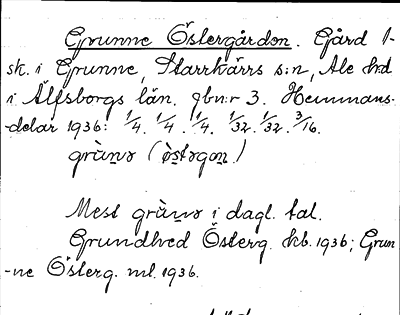 Grunne Östergården. Gård 1-
sk. i Grunne, Starrkärrs s:n, Ale hd
i Älfsborgs län. Jbnr 3. Hemmans-
-delar 1936: 1/4. 1/4. 1/4. 1/32. 1/32. 3/16.
grùnə (östərgɒn)
Mest grùnə i dagl. tal.
Grundhed Österg. kb. 1936; Grun
-ne Österg. ml. 1936.